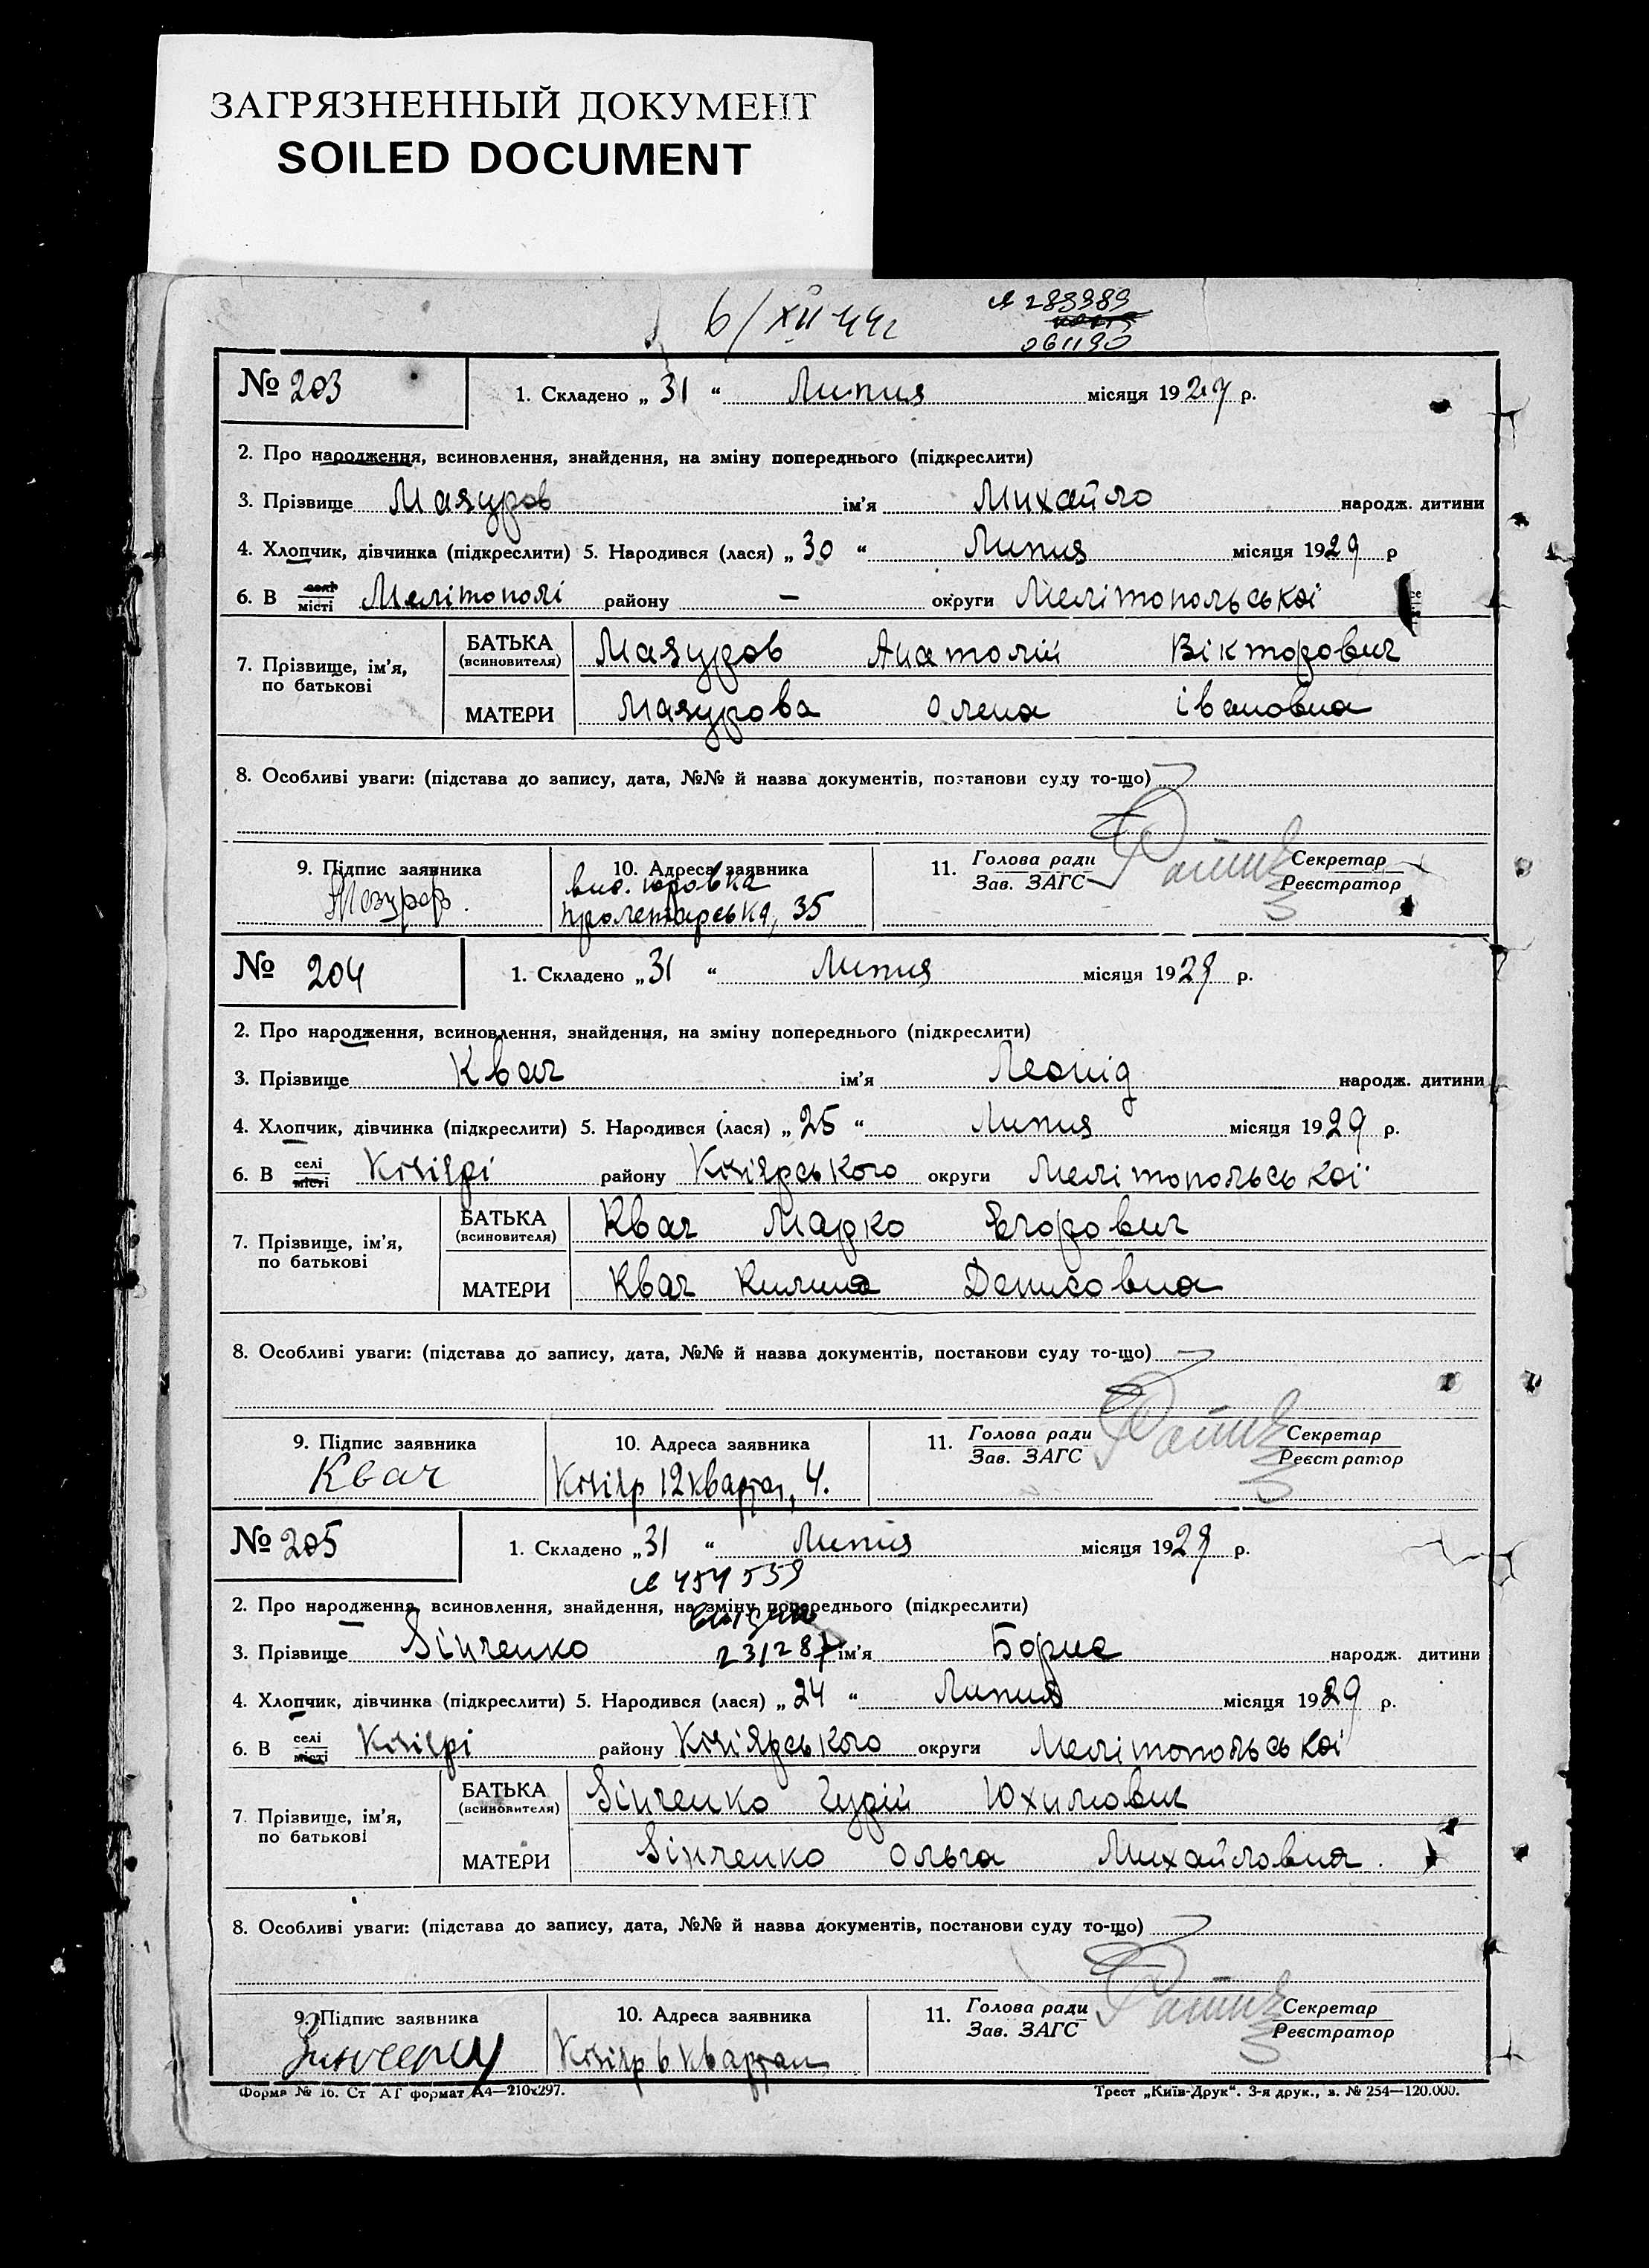 ЗАГРЯЗНЕННЫЙ ДОКУМЕНТ
SOILED DOCUMENT
6/XII 44г
289989
061190
№ 203 1. Складено „ 31 “ Липня місяця 1929 р.
2. Про народження, всиновлення, знайдення, на зміну попереднього (підкреслити)
3. Прізвище Мазуров ім'я Михайло народж. дитини
4. Хлопчик, дівчинка (підкреслити) 5. Народився (лася) „ 30 “ Липня місяця 1929 р
6. В селі місті Мелітополі району — округи Мелітопольської
7. Прізвище, ім'я, по батькові БАТЬКА (всиновителя) Мазуров Анатолій Вікторович
МАТЕРИ Мазурова Олена Івановна
8. Особливі уваги: (підстава до запису, дата, №№ й назва документів, постанови суду то-що)
9. Підпис заявника 10. Адреса заявника 11. Голова ради Секретар
Зав. ЗАГС Реєстратор
Мазуров. Пролетарська, 35
№ 204 1. Складено „ 31 “ Липня місяця 1929 р.
2. Про народження, всиновлення, знайдення, на зміну попереднього (підкреслити)
3. Прізвище Квач ім'я Леонід народж. дитини
4. Хлопчик, дівчинка (підкреслити) 5. Народився (лася) „ 25 “ Липня місяця 1929 р.
6. В селі місті Кізіярі району Кізіярського округи Мелітопольської
7. Прізвище, ім'я, по батькові БАТЬКА (всиновителя) Квач Марко Єгорович
МАТЕРИ Квач Килина Денисовна
8. Особливі уваги: (підстава до запису, дата, №№ й назва документів, постанови суду то-що)
9. Підпис заявника 10. Адреса заявника 11. Голова ради Секретар
Зав. ЗАГС Реєстратор
Квач Кізіяр 12 квартал, 4.
№ 205 1. Складено „ 31 “ Липня місяця 1929 р.
454539
2. Про народження, всиновлення, знайдення, на зміну попереднього (підкреслити)
3. Прізвище Зінченко 231287 ім'я Борис народж. дитини
4. Хлопчик, дівчинка (підкреслити) 5. Народився (лася) „ 24 “ Липня місяця 1929 р.
6. В селі місті Кізіярі району Кізіярського округи Мелітопольської
7 Прізвище, ім'я, по батькові БАТЬКА (всиновителя) Зінченко Гурій Юхимович
МАТЕРИ Зінченко Ольга Михайловна.
8. Особливі уваги: (підстава до запису, дата, №№ й назва документів, постанови суду то-що)
9. Підпис заявника 10. Адреса заявника 11. Голова ради Секретар
Зав. ЗАГС Реєстратор
Кізіяр 6 квартал
Форма № 16. Ст АГ формат А4—210х297. Трест „Київ-Друк“. 3-я друк., з. № 254—120.000.